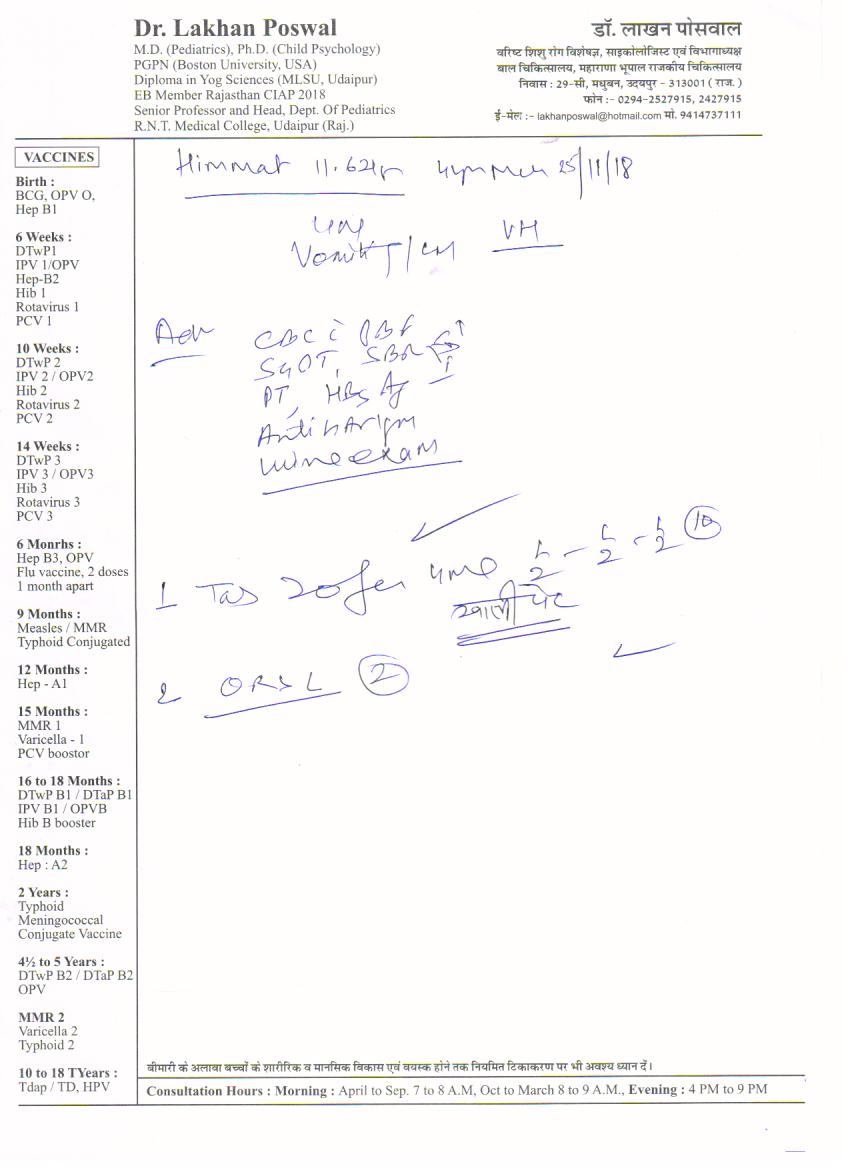 Dr. Lakhan Poswal
M.D. (Pediatrics), Ph.D. (Child Psychology)
PGPN (Boston University, USA)
Diploma in Yog Sciences (MLSU, Udaipur)
EB Member Rajasthan CIAP 2018
Senior Professor and Head, Dept. Of Pediatrics
R.N.T. Medical College, Udaipur (Raj.)
डॉ. लाखन पोसवाल
वरिष्ट शिशु रोग विशेषज्ञ, साइकोलॉजिस्ट एवं विभागाध्यक्ष
बाल चिकित्सालय, महाराणा भूपाल राजकीय चिकित्सालय
निवास : 29-सी, मधुबन, उदयपुर - 313001 ( राज. )
फोन :- 0294-2527915, 2427915
ई-मेल :- lakhanposwal@hotmail.com मो. 9414737111
VACCINES
Birth :
BCG, OPV O,
Hep B1
6 Weeks :
DTwP1
IPV 1/OPV
Hep-B2
Hib 1
Rotavirus 1
PCV 1
10 Weeks :
DTwP 2
IPV 2 / OPV2
Hib 2
Rotavirus 2
PCV 2
14 Weeks :
DTwP 3
IPV 3 / OPV3
Hib 3
Rotavirus 3
PCV 3
6 Monrhs :
Hep B3, OPV
Flu vaccine, 2 doses
1 month apart
9 Months :
Measles / MMR
Typhoid Conjugated
12 Months :
Hep - A1
15 Months :
MMR 1
Varicella - 1
PCV boostor
16 to 18 Months :
DTwP B1 / DTaP B1
IPV B1 / OPVB
Hib B booster
18 Months :
Hep : A2
2 Years :
Typhoid
Meningococcal
Conjugate Vaccine
4½ to 5 Years :
DTwP B2 / DTaP B2
OPV
MMR 2
Varicella 2
Typhoid 2
10 to 18 TYears :
Tdap / TD, HPV
Himmat 25/11/18
VH
Adv CBC c PBF
SGOT, SBR
PT, HBsAg
Anti HAV IgM
urine exam
1 Tab 20fer
खाली पेट
2 ORSL 2
बीमारी के अलावा बच्चों के शारीरिक व मानसिक विकास एवं वयस्क होने तक नियमित टिकाकरण पर भी अवश्य ध्यान दें।
Consultation Hours : Morning : April to Sep. 7 to 8 A.M, Oct to March 8 to 9 A.M., Evening : 4 PM to 9 PM